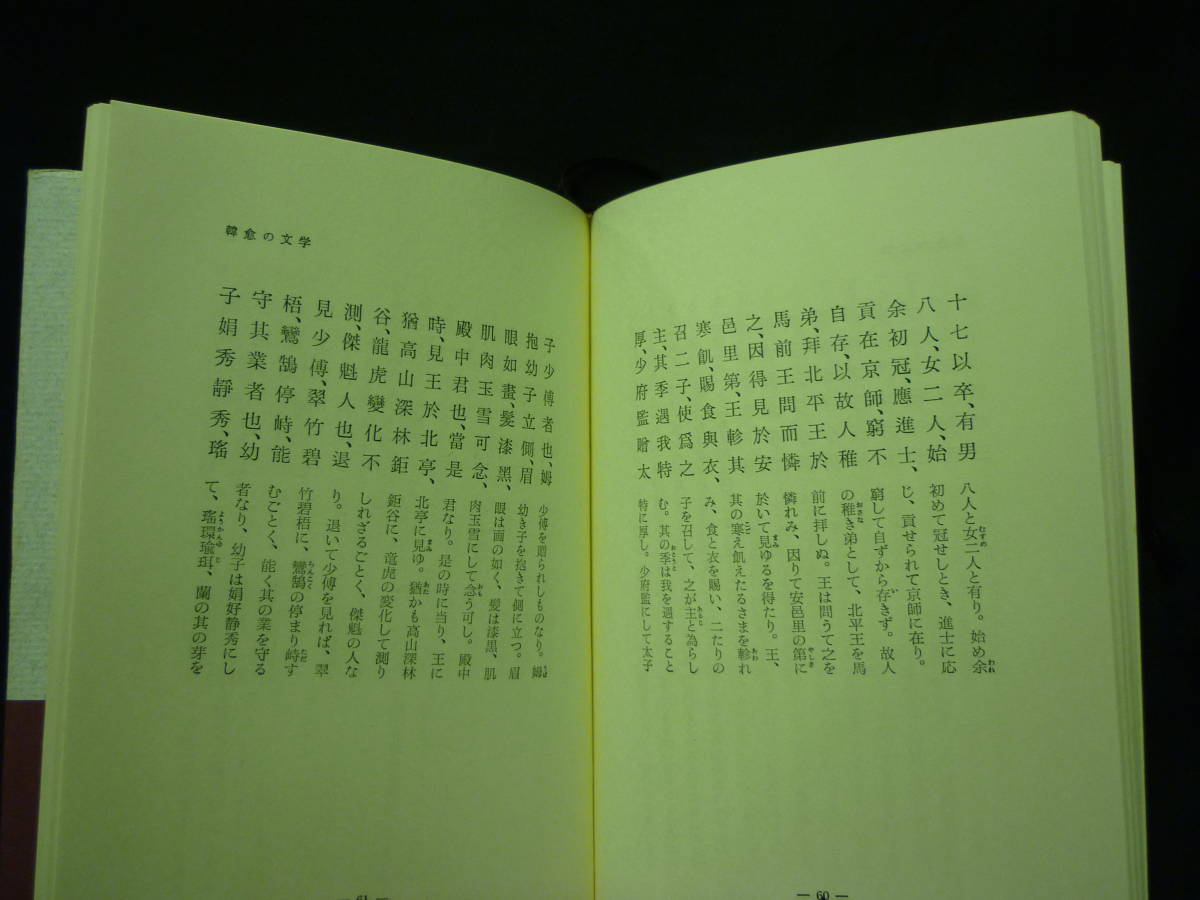 十七以卒、有男
八人、女二人、始
余初冠、應進士、
貢在京師、窮不
自存、以故人稚
弟、拜北平王於
馬前王問而憐
之、因得見於安
邑里第、王軫其
寒飢、賜食與衣、
召二子、使爲之
主、其季遇我特
厚、少府監贈太
八人と女二人と有り。始め余
初めて冠せしとき、進士に応
じ、貢せられて京師に在り。
窮して自ずから存きず。故人
の稚き弟として、北平王を馬
前に拝しぬ。王は問うて之を
憐れみ、因りて安邑里の第に
於いて見ゆるを得たり。王、
其の寒え飢えたるさまを軫れ
み、食と衣を賜い、二たりの
子を召して、之が主と為らし
む。其の季は我を遇すること
特に厚し。少府監にして太子
— 60 —
韓愈の文学
子少傅者也、姆
抱幼子立側眉
眼如畫、髮漆黑、
肌肉玉雪可念、
殿中君也、當是
時、見王於北亭、
猶高山深林鉅
谷、龍虎變化不
測、傑魁人也、退
見少傅、翠竹碧
梧、鸞鵠停峙、能
守其業者也、幼
子娟秀靜秀、瑤
少傅を贈られしものなり。姆
幼き子を抱きて側に立つ。眉
眼は画の如く、髪は漆黒、肌
肉玉雪にして念う可し。殿中
君なり。是の時に当り、王に
北亭に見ゆ。猶かも高山深林
鉅谷に、竜虎の変化して測り
しれざるごとく、傑魁の人な
り。退いて少傅を見れば、翠
竹碧梧に、鸞鵠の停まり峙す
むごとく、能く其の業を守る
者なり、幼子は娟好静秀にし
て、瑤環瑜珥、蘭の其の芽を
— 61 —